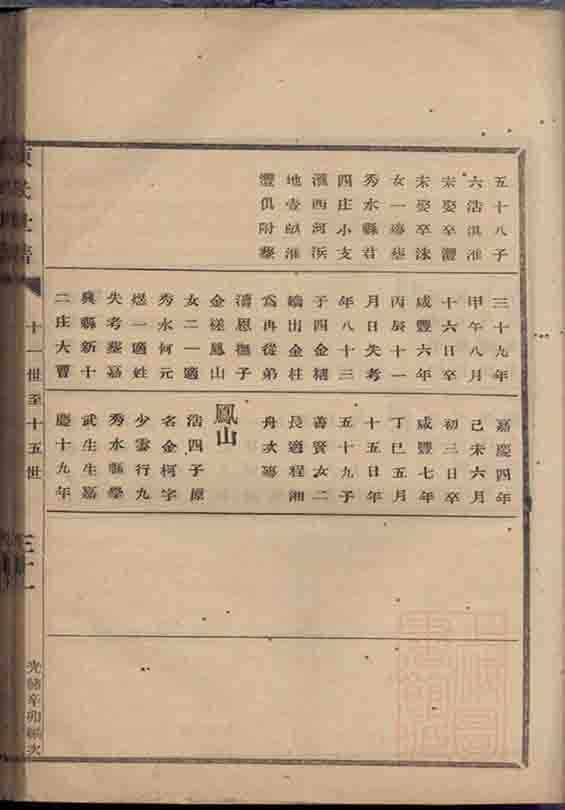 五十八子
六浩淇淮
未娶卒灃
未娶卒洙
女一適慈
秀水縣君
四庄小支
滙西河浜
地壹畝淮
灃俱附葬
三十九年
甲午八月
十六日卒
咸豐六年
丙辰十一
月日失考
年八十三
子四金樁
嶠出金柱
為再從弟
濤恩撫子
金槎鳳山
女二一適
秀水何元
煜一適姓
失考葬嘉
興縣新十
二庄大曹
嘉慶四年
己未六月
初三日卒
咸豐七年
丁巳五月
十五日年
五十九子
善賢女二
長適程湘
舟次專
鳳山
浩四子原
名金柯字
少雲行九
秀水縣學
武生生嘉
慶十九年
世譜
十一世至十五世
三十一
光緒辛卯編次